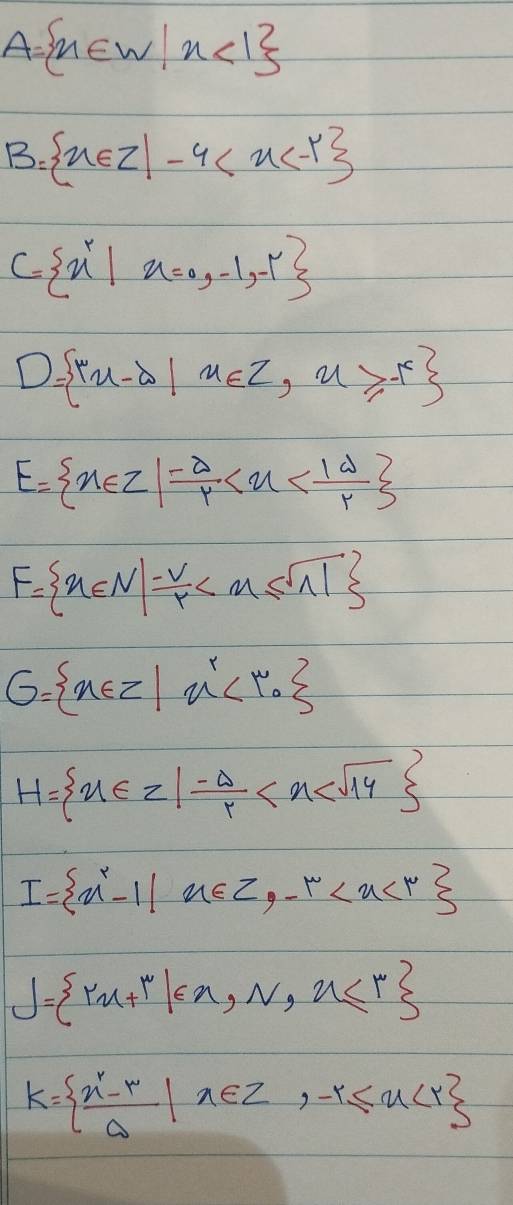 A={x∈W | x<۱}
B={x∈Z | -۶< x<-۲}
C={x² | x=۰,-۱,-۲}
D={۳x-۵ | x∈Z, x ⩾-۴}
E={x∈Z | -۵/۲ < x < ۱۵/۲}
F={x∈N | -۷/۲ < x ⩽ √۸۱}
G={x∈Z | x²<۳۰}
H={x∈Z | -۵/۲ < x<√۱۶}
I={x²-۱ | x∈Z, -۳<x<۳}
J={۲x+۳ | ∈x, N, x⩽۳}
K={x²-۳/۵ | x∈Z , -۲⩽x<۲}